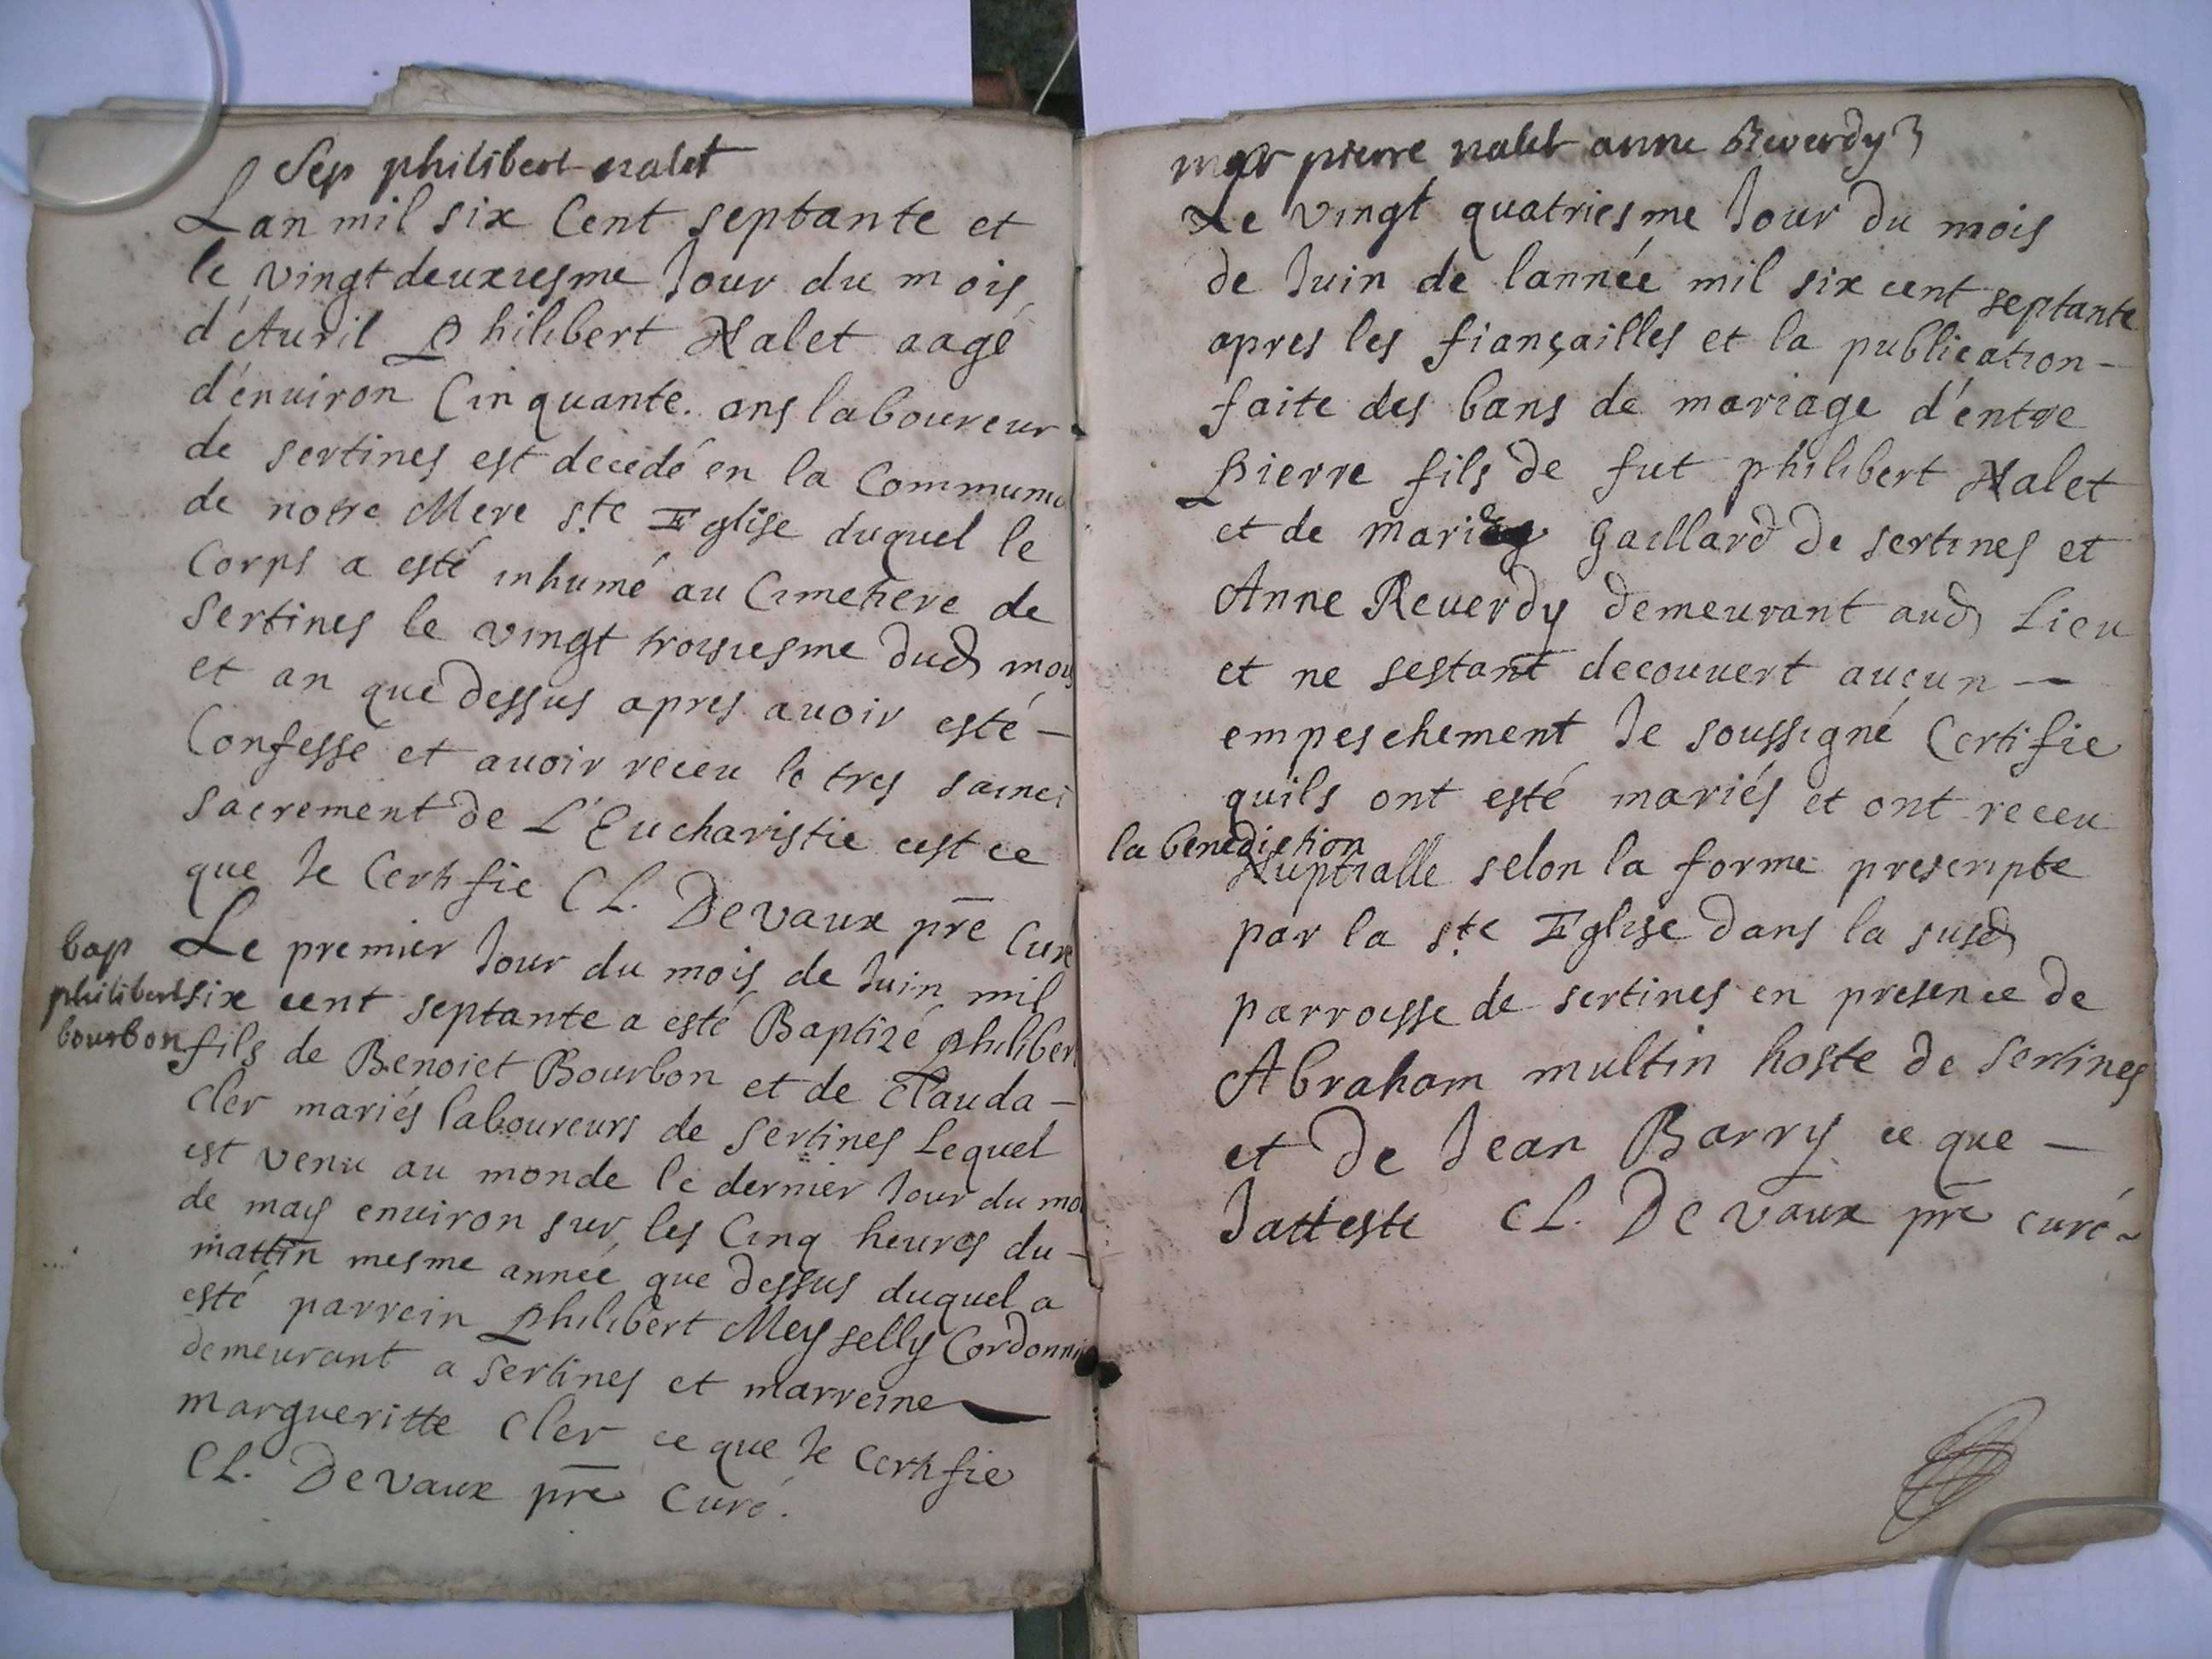 Sep philibert nalet
Lan mil six Cent septante et
le vingt deuxiesme Jour du mois
d'Auril Philibert Nalet aagé
d'enuiron Cinquante ans laboureur
de sertines est decedé en la Communi
de notre Mere ste Eglise duquel le
Corps a esté inhumé au Cimetiere de
Sertines le vingt troisiesme dud mois
et an que dessus apres auoir esté -
Confessé et auoir receu le tres sainct
sacrement de L'Eucharistie cest ce
que Je Certifie CL. Devaux pre Curé
bap
philibert
bourbon
Le premier Jour du mois de Juin mil
six cent septante a esté Baptizé philibert
fils de Benoict Bourbon et de Clauda -
Cler mariés laboureurs de Sertines Lequel
est venu au monde le dernier Jour du moi
de may enuiron sur les Cinq heures du -
mattin mesme année que dessus duquel a
esté parrein Philibert Meyselly Cordonni
demeurant a Sertines et marreine
margueritte Cler ce que Je certifie
CL. Devaux pre Curé.
mar pierre nalet anne Reverdy
Le vingt quatriesme Jour du mois
de Juin de lannée mil six cent septante
apres les fiançailles et la publication -
faite des bans de mariage d'entre
Pierre fils de fut philibert Nalet
et de marie Gaillard de sertines et
Anne Reuerdy demeurant aud Lieu
et ne sestant decouuert aucun -
empeschement Je soussigné Certifie
quils ont esté mariés et ont receu
la benediction
Nuptialle selon la forme prescripte
par la ste Eglise dans la susd
parroisse de sertines en presence de
Abraham multin hoste de Sertines
et de Jean Barry ce que -
Jatteste CL. Devaux pre curé